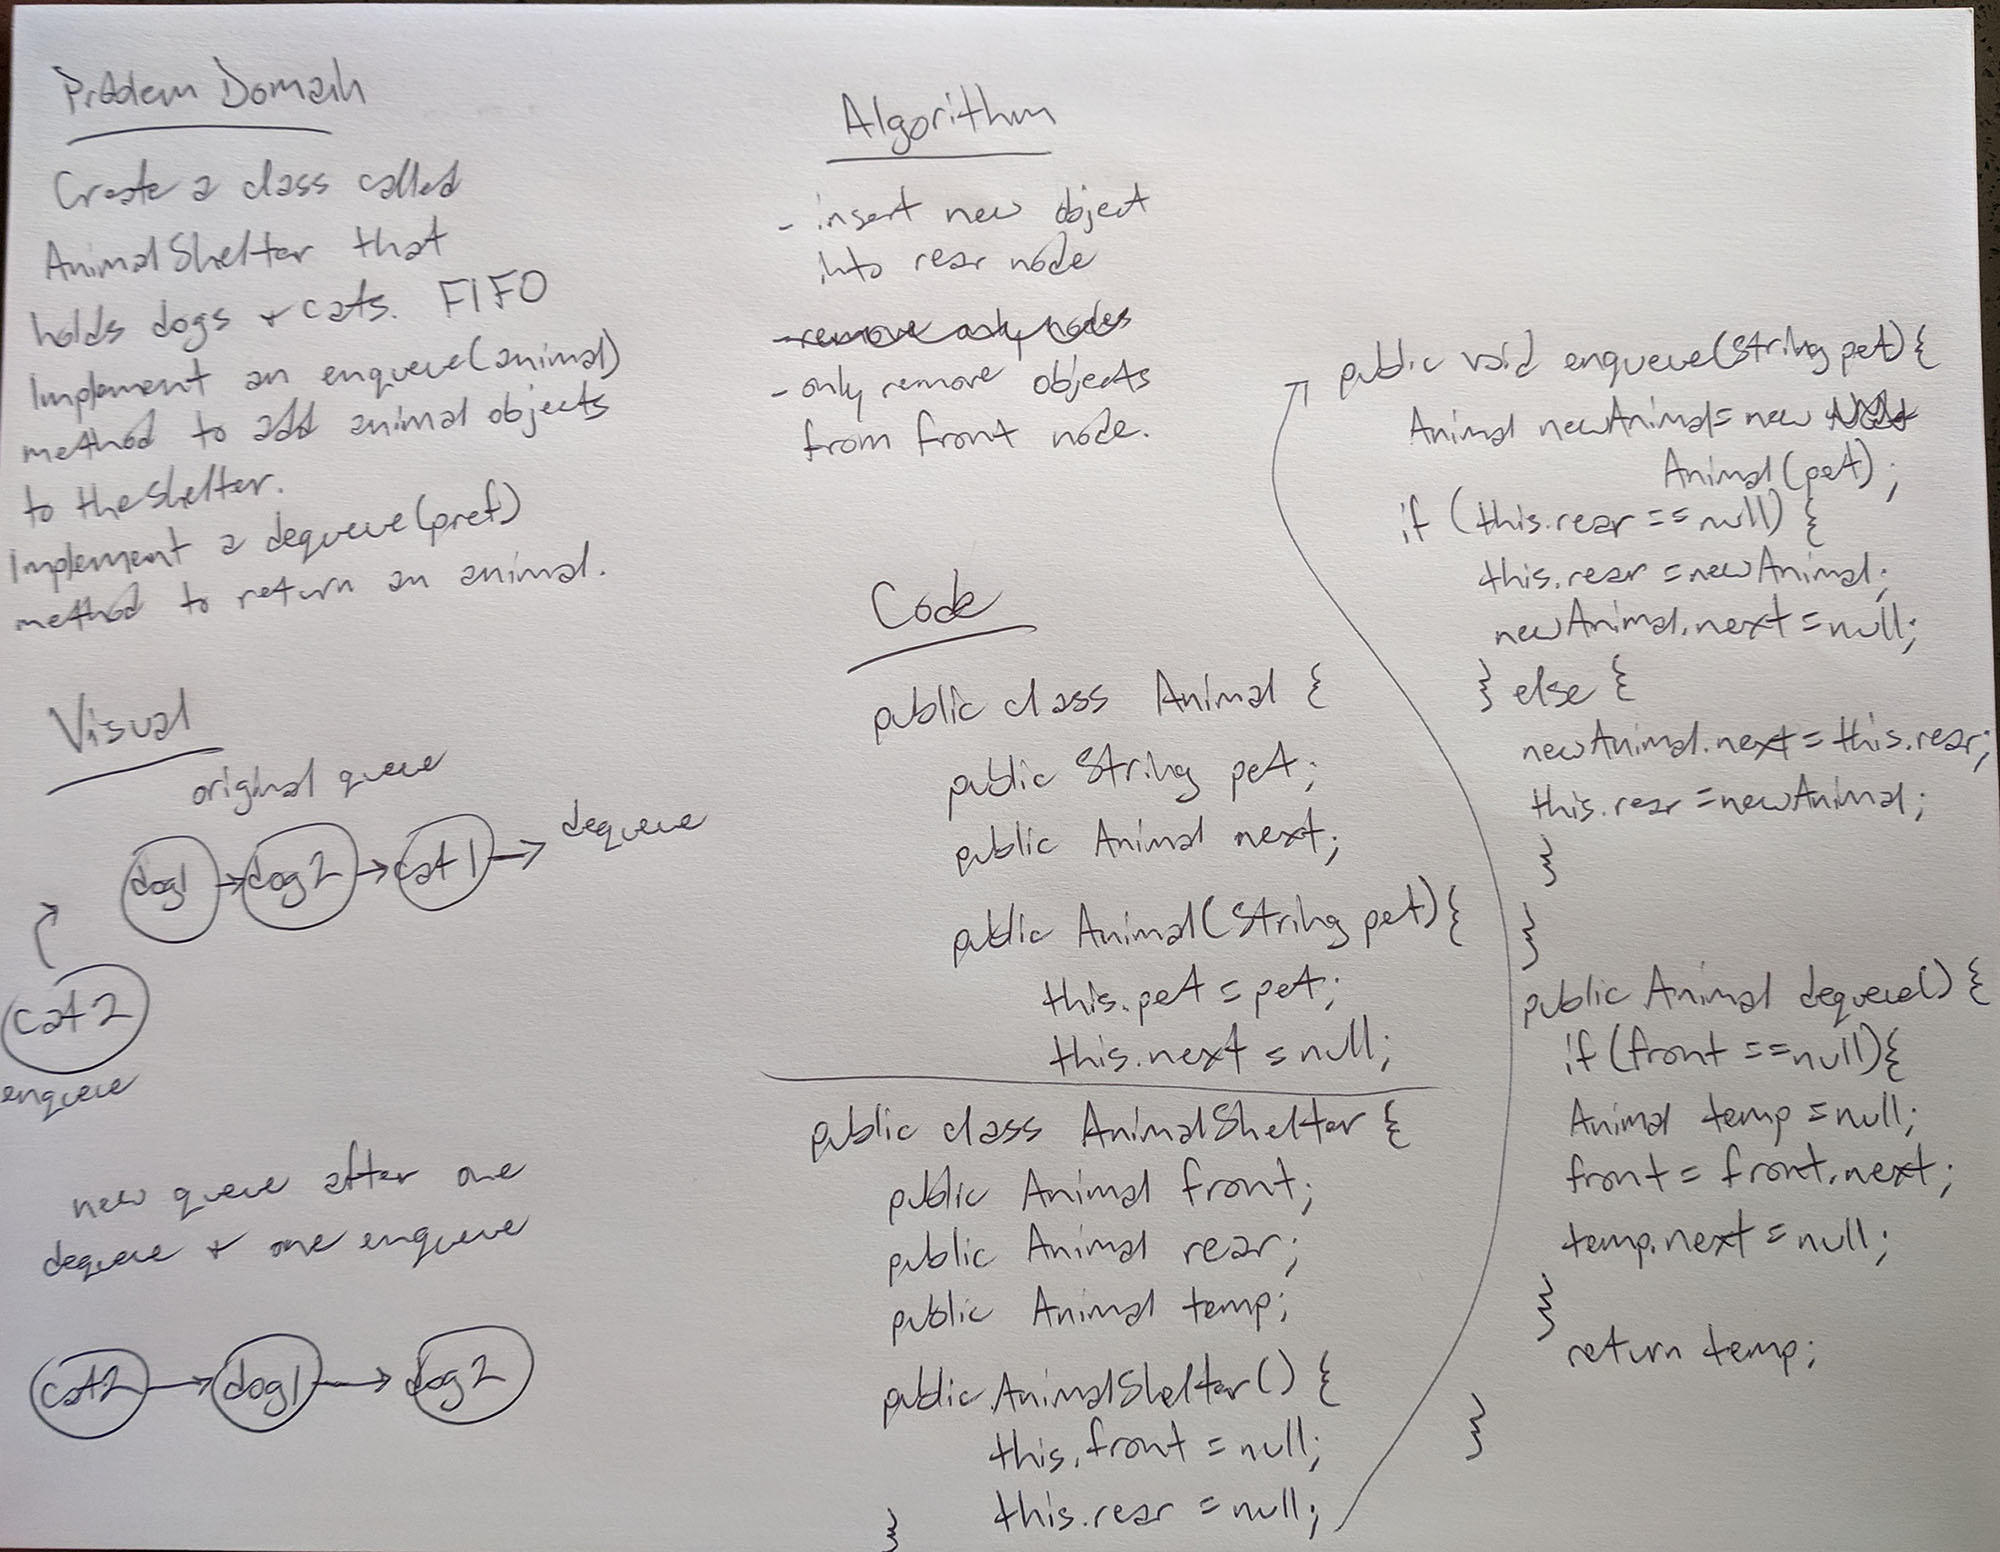 Problem Domain
Create a class called
AnimalShelter that
holds dogs + cats. FIFO
Implement an enqueue(animal)
method to add animal objects
to the shelter.
Implement a dequeue(pref)
method to return an animal.
Visual
original queue
dog1 → dog2 → cat1 → dequeue
cat2
enqueue
new queue after one
dequeue + one enqueue
cat2 → dog1 → dog2
Algorithm
- insert new object
into rear node
- remove only nodes
- only remove objects
from front node.
Code
public class Animal {
public String pet;
public Animal next;
public Animal(String pet){
this.pet = pet;
this.next = null;
public class AnimalShelter {
public Animal front;
public Animal rear;
public Animal temp;
public AnimalShelter() {
this.front = null;
this.rear = null;
}
public void enqueue(String pet){
Animal newAnimal = new
Animal(pet);
if (this.rear == null) {
this.rear = newAnimal;
newAnimal.next = null;
} else {
newAnimal.next = this.rear;
this.rear = newAnimal;
}
}
public Animal dequeue() {
if (front == null){
Animal temp = null;
front = front.next;
temp.next = null;
}
return temp;
}